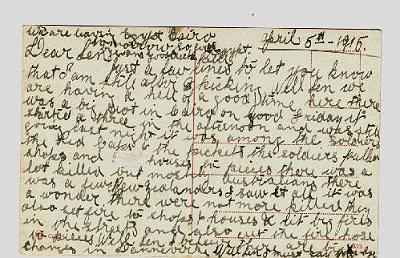 we are leaving egypt Cairo
tomorrow so
April 5th - 1915.
Dear Len
egypt
just a few lines to let you know
that I am still alive & kicking well Len we
are having a hell of a good time here there
was a big riot in Cairo on good Friday it
started in the afternoon and was still
going last night it was among the soldiers
the Red Caps & the pickets the soldiers
shops and houses to pieces there was a
lot killed but mostly Australians there
was a few New zealanders I saw it all it was
a wonder there were not more killed they
also set fire to shops & houses & lit big fires
in the streets and also cut the fire hose
to pieces well Len I believe there are
changes in Dannevirke well Len I must